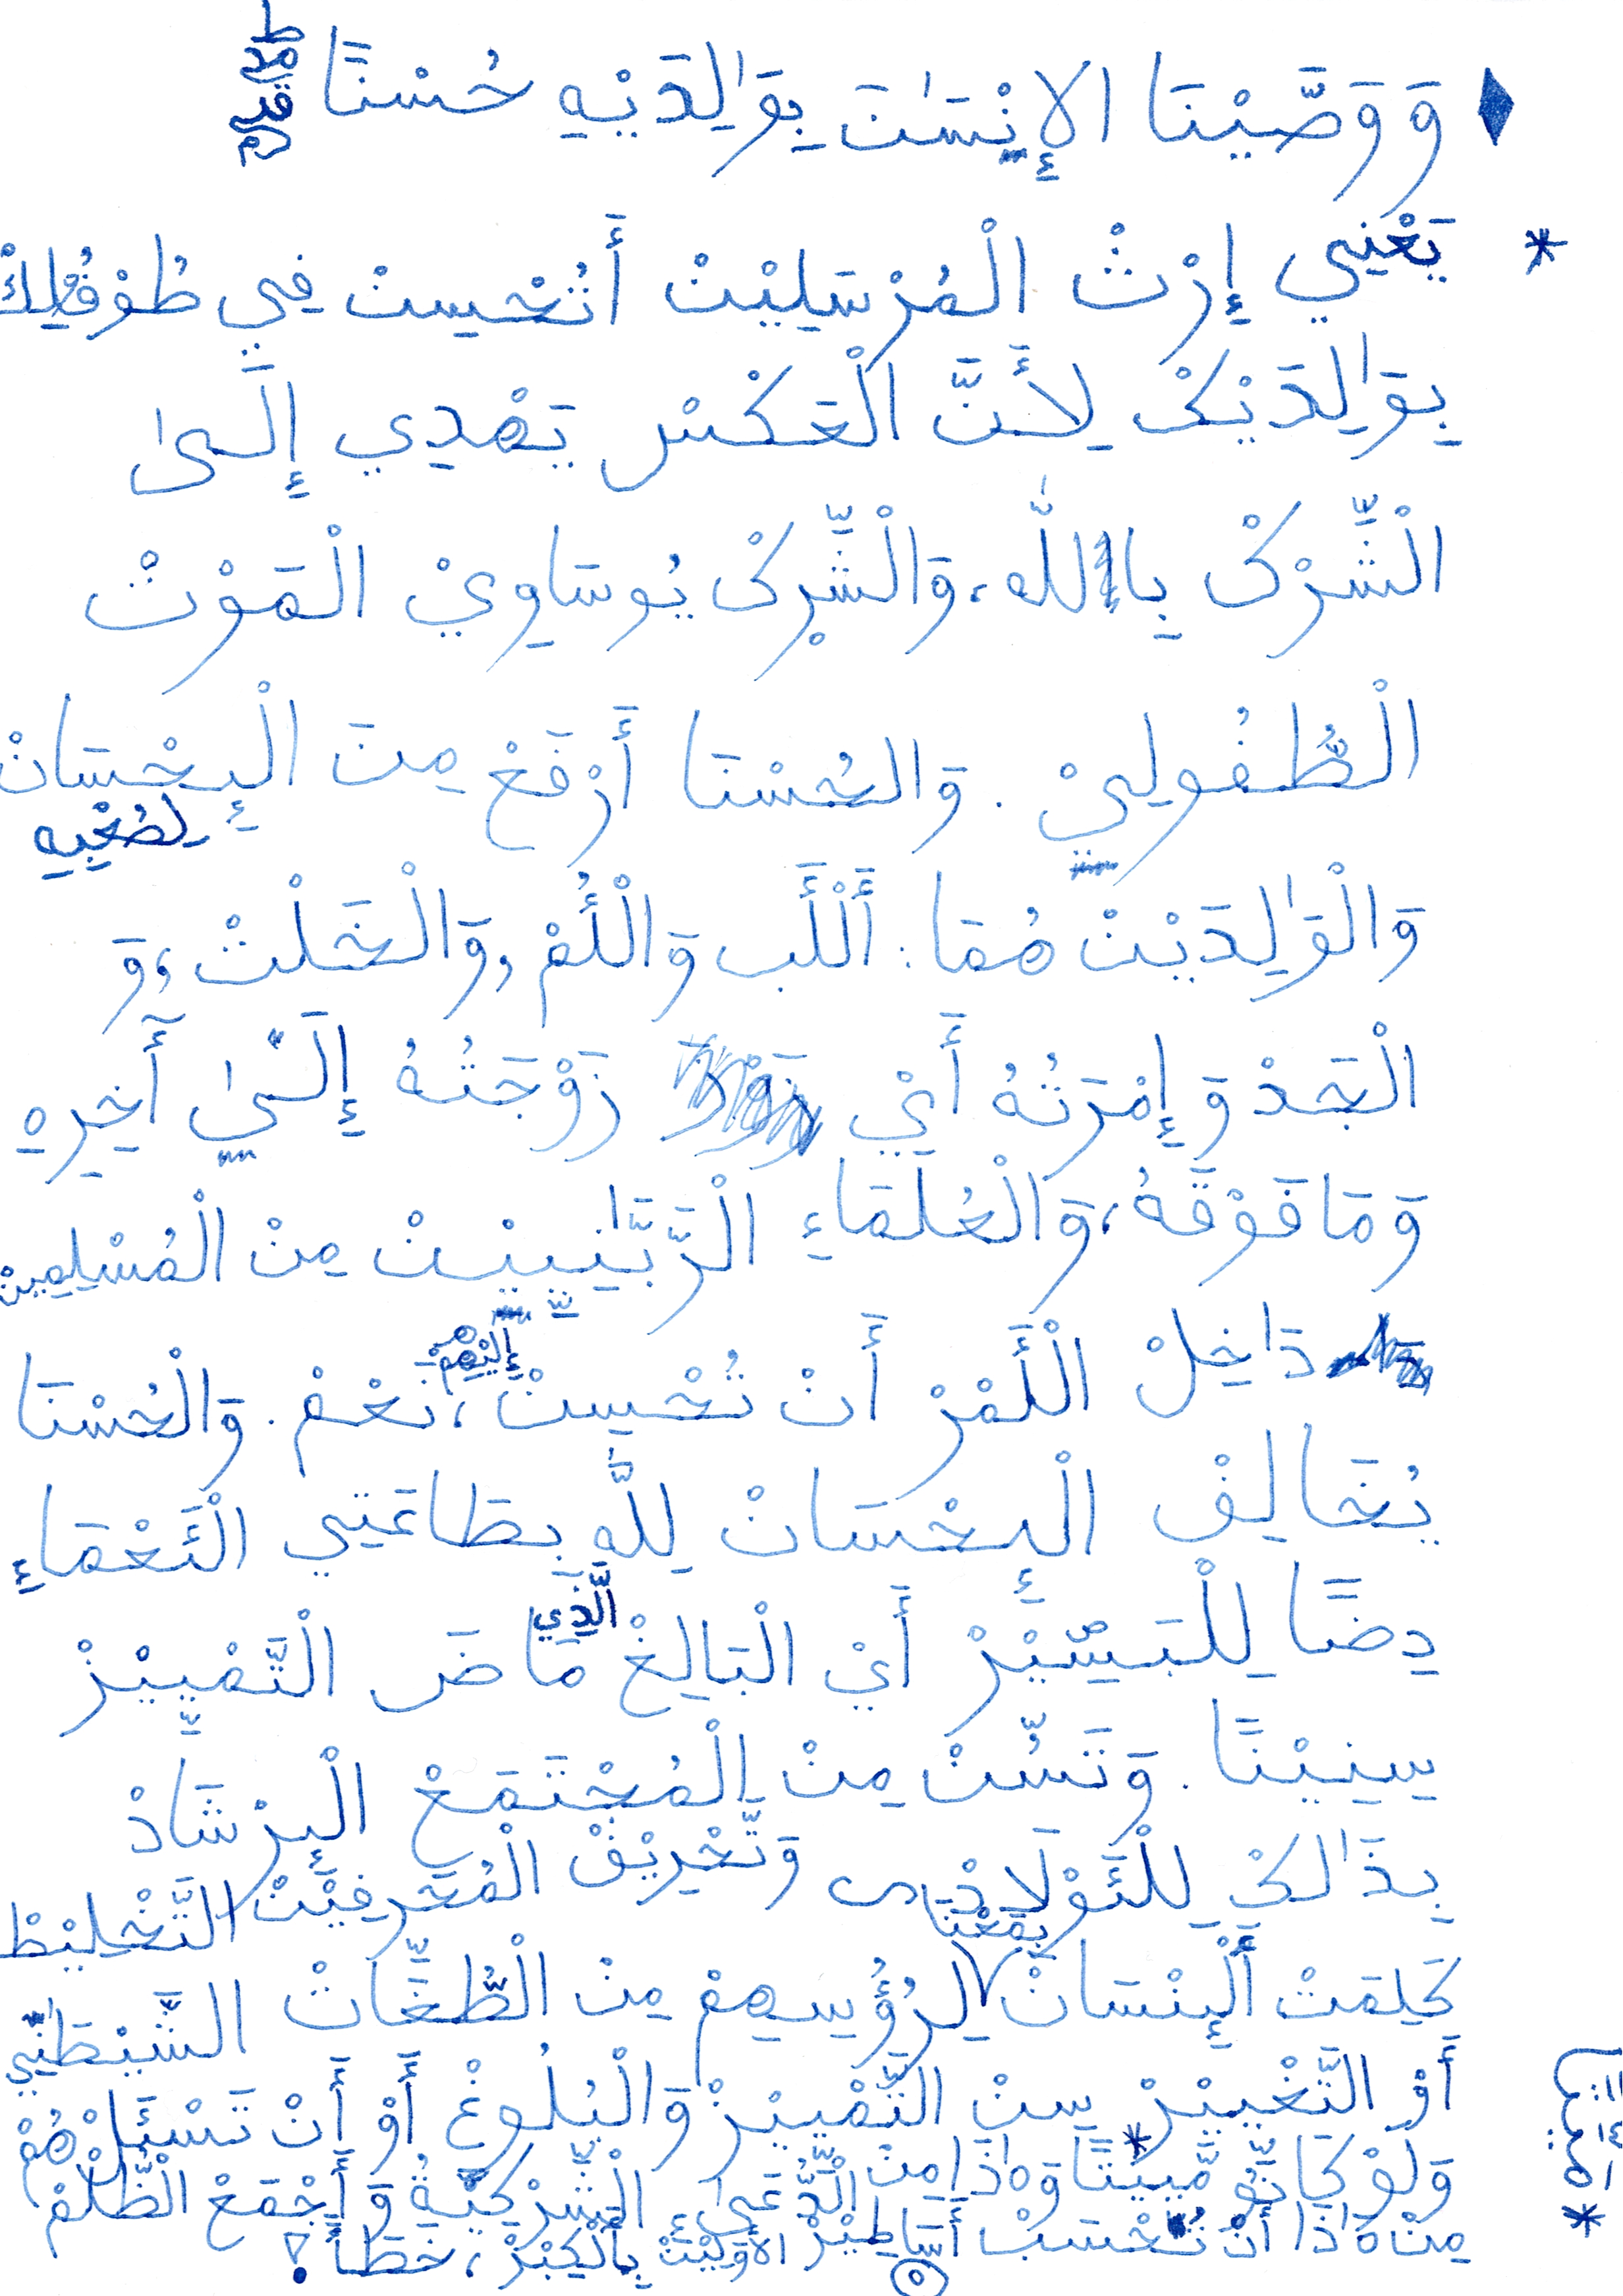 وَوَصَّيْنَا الإِنْسَٰنَ بِوَٰلِدَيْهِ حُسْنًا
* يَعْنِي إِرْثْ الْمُرْسَلِيْنْ أَنْتُحْسِنْ فِي طُوْفُلِكْ
بِوَٰلِدَيْكْ لِأَنَّ الْعَكْسْ يَهْدِي إِلَىٰ
الْشِّرْكْ بِاللّٰه، وَالْشِّرِكْ يُوسَاوِيْ الْمَوْتْ
الْطُّفُولِيْ . وَالحُسْنَا أَرْفَعْ مِنَ الْإِحْسَانْ
لِصُحْبِهِ
وَالْوَٰلِدَيْنْ هُمَا : أَلْأَب وَالْأُمْ ,وَالْخَلْتْ ,وَ
الْجَدْ وَإِمْرَتُهُ أَيْ زَوْجَتُهُ إِلَىٰ أَخِرِهِ
وَمَا فَوْقَهُ، وَالْعُلَمَاءِ الْرَّبَّٰنِيِيْنْ مِنْ الْمُسْلِمِيْنْ
دَاخِلْ الْأَمْرْ أَنْ تُحْسِنْ إِلَيْهِمْ، نَعْمْ . وَالْحُسْنَا
يُخَالِفْ الْإِحْسَانْ لِلَّٰهِ بِطَاعَتِي الْنَعْمَاءِ
أَيْ الْبَالِغْ الَّذِي مَاضَ الْتَّمْيِيْزْ
سِنِيْنًا . وَ مِنْ الْمُجْتَمَعْ الْإِرْشَادْ
بِذَٰلِكْ لِلْئَوْلَادْ وَتَّحْرِيْفْ الْمُحَرِفِيْنْ التَّغْلِيْظْ
كَلِمَتْ أَلْإِنْسَانْ بِمَعْنَا لِرُؤُسِهِمْ مِنْ الْطُّغَّاتْ الشَّيْطَنِيّ
أَوْ التَّغْيِيْرْ سِنْ التَّمْيِيْزْ وَالْبُلُوغْ أَوْ أَنْ تَسْئَلْهُمْ
وَلَوْ كَانُو مَّيِّتًا وَهَٰذَا مِنْ الْشِّرْكِيَّةُ وَأَجْمَعْ الْظُّلْمْ
مِنْ هَٰذَا أَنْ تُحْسَبْ أَسَاطِيْرْ الأَوَّلِيْنْ بِأَلْكِبْرْ، خَطَأْ !